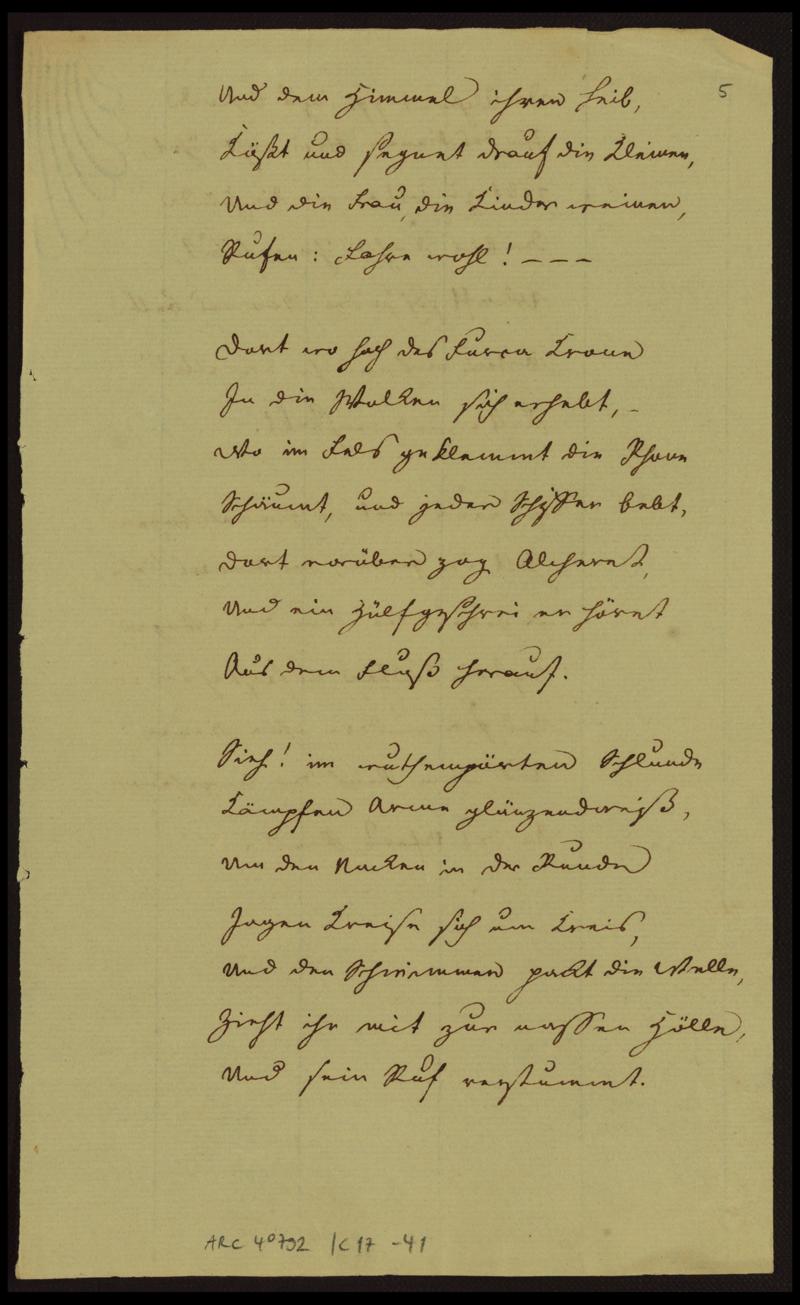 5
Und dem Himmel ihren Leib,
Küßt und segnet drauf die Kleinen,
Und die Frau, die Kinder weinen,
Rufen: Fahre wohl! – – –
Dort wo hoch des Furca Krone
In die Wolken sich erhebt, –
Wo im Fels geklemmt die Rhone
Schäumt, und jeder Schiffer bebt,
Dort vorüber zog
Und ein Hülfgeschrei er höret
Aus dem Fluß herauf.
Sieh! im wuthempörten Schlunde
Kämpfen Arme glänzendweiß,
Um den Nacken in der Runde
Jagen Kreise sich um Kreis,
Und den Schwimmer packt die Welle,
Zieht ihn mit zur nassen Hölle,
Und sein Ruf verstummt.
ARC 4º 792 / K 17 - 41